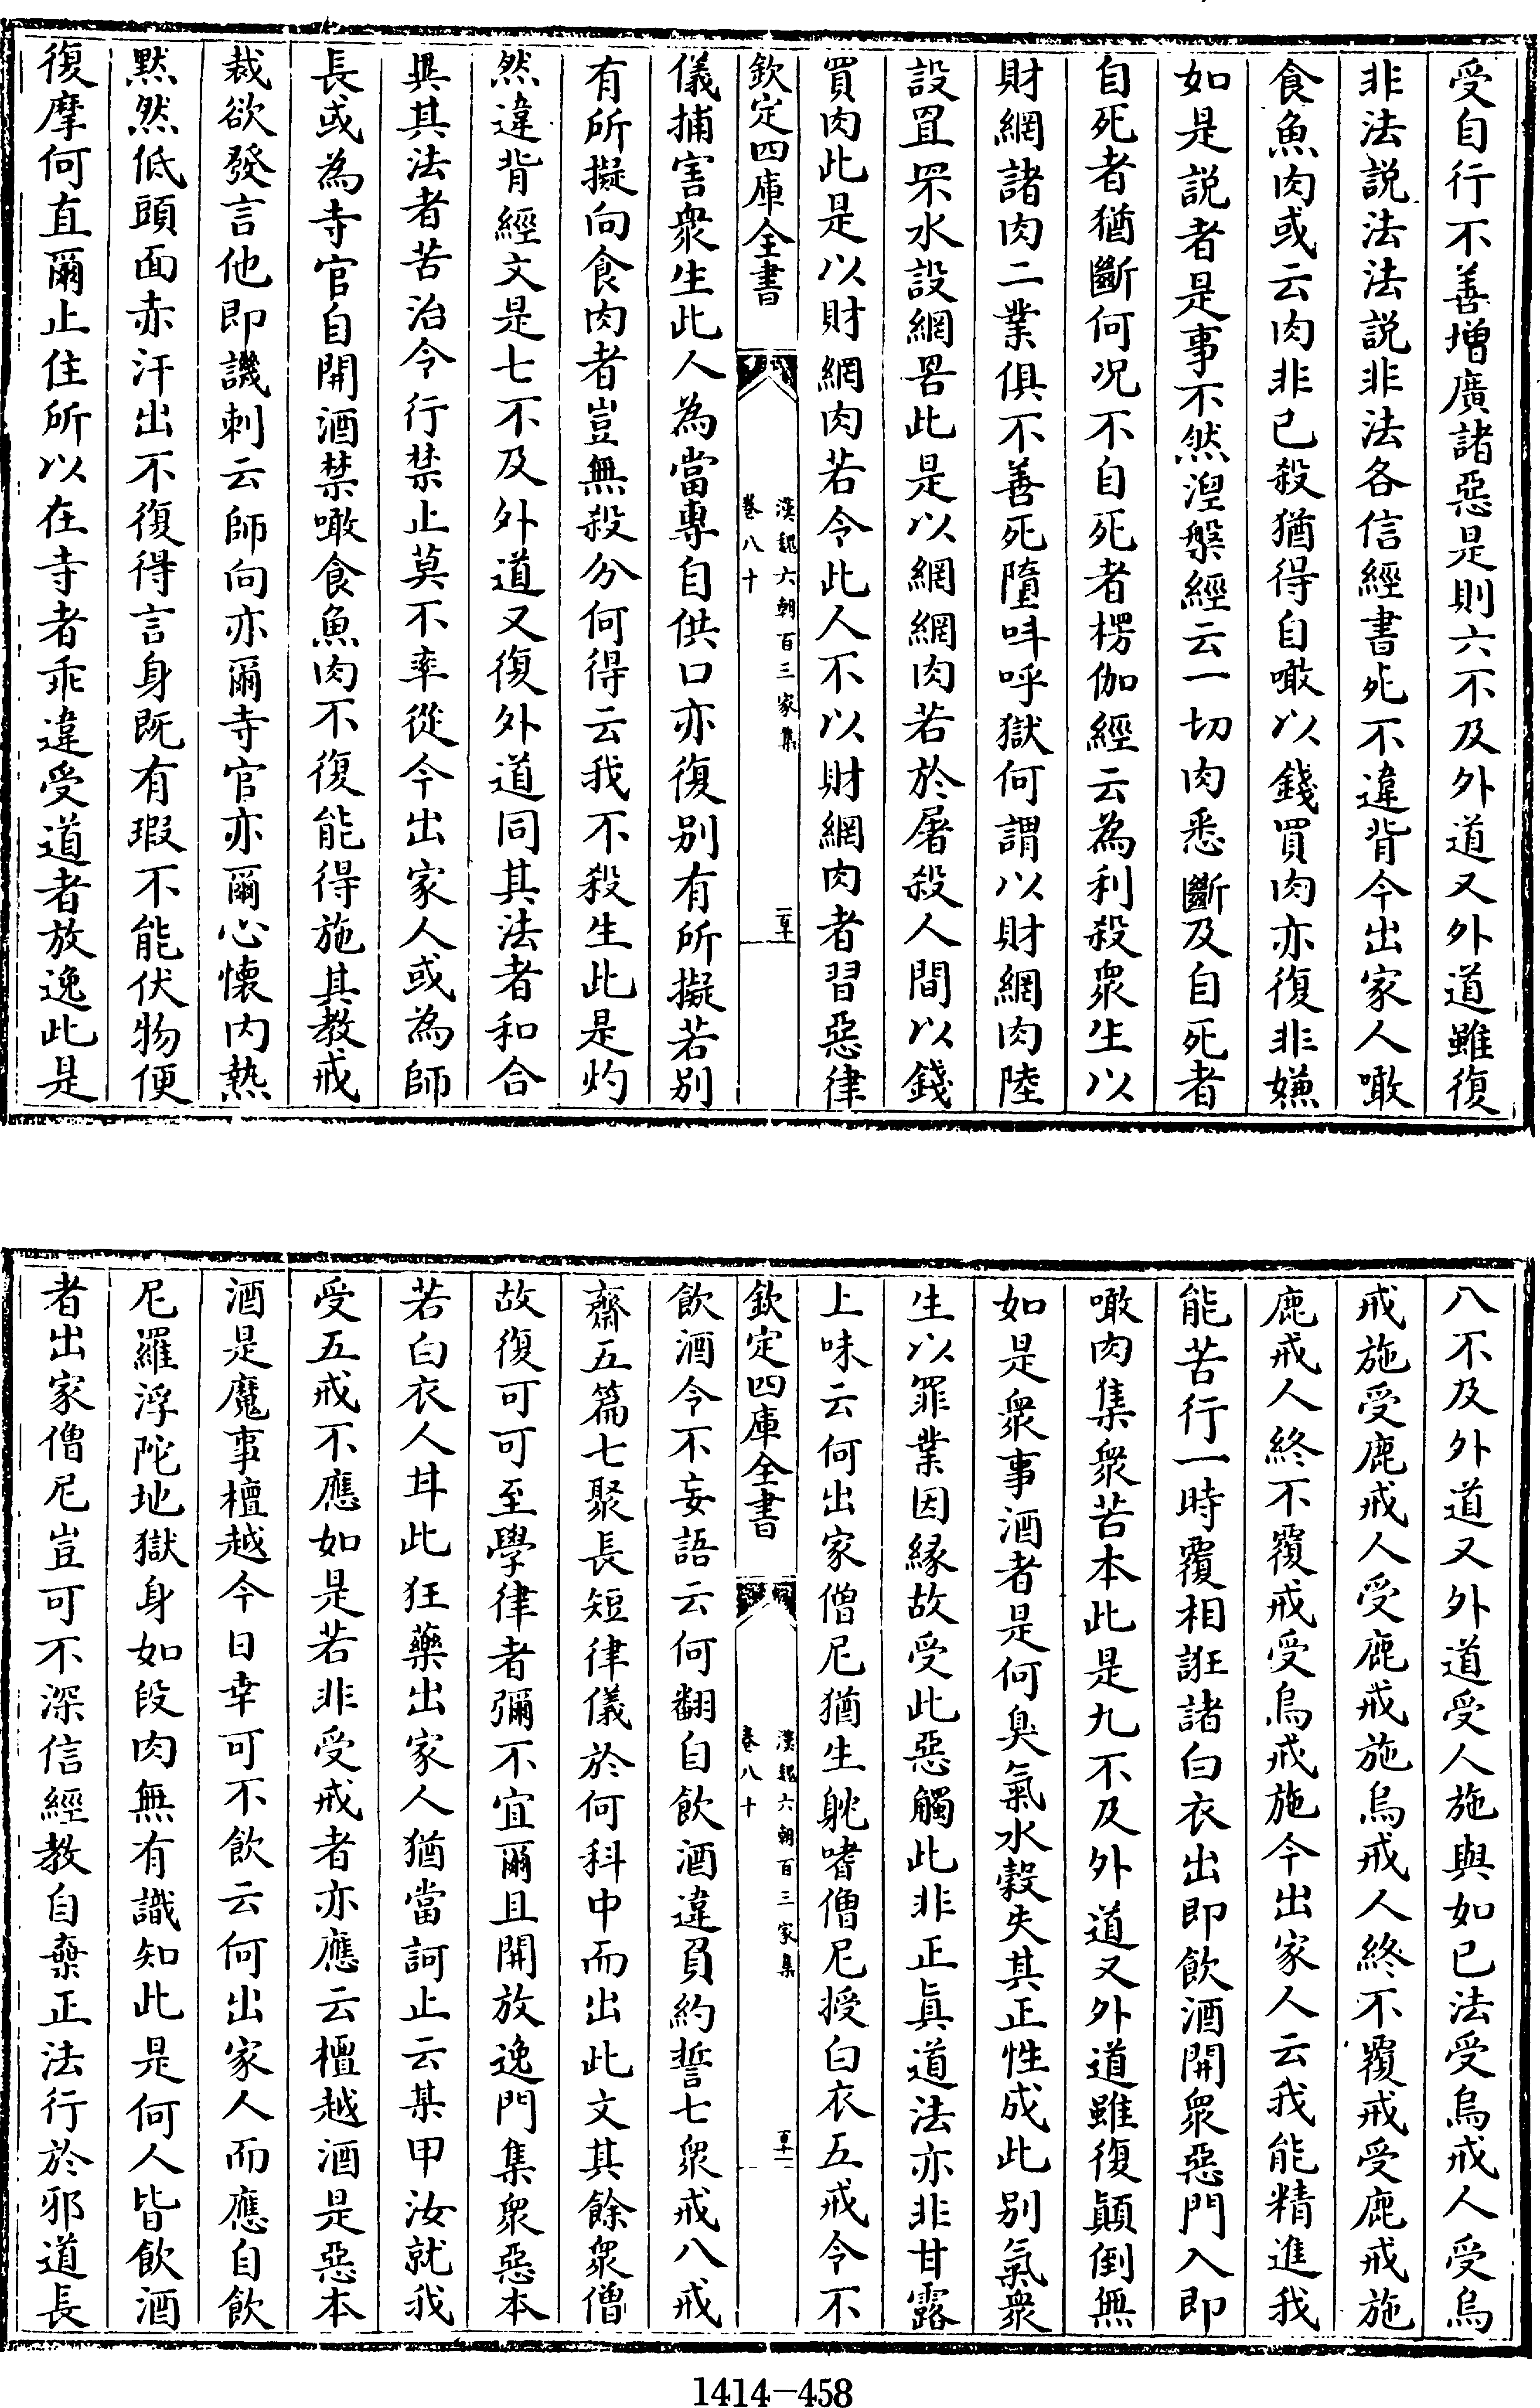 受自行不善增廣諸惡是則六不及外道又外道雖復
非法説法法説非法各信經書死不違背今出家人噉
食魚肉或云肉非已殺猶得自噉以錢買肉亦復非嫌
如是説者是事不然湼槃經云一切肉悉斷及自死者
自死者猶斷何况不自死者楞伽經云為利殺衆生以
財網諸肉二業俱不善死墮呌呼獄何謂以財網肉陸
設罝罘水設網罟此是以網網肉若於屠殺人間以錢
買肉此是以財網肉若令此人不以財網肉者習惡律
欽定四庫全書
漢魏六朝百三家集
卷八十
儀捕害衆生此人為當專自供口亦復别有所擬若别
有所擬向食肉者豈無殺分何得云我不殺生此是灼
然違背經文是七不及外道又復外道同其法者和合
異其法者苦治令行禁止莫不率從今出家人或為師
長或為寺官自開酒禁噉食魚肉不復能得施其教戒
裁欲發言他即譏刺云師向亦爾寺官亦爾心懷内熱
黙然低頭面赤汗出不復得言身既有瑕不能伏物便
復摩何直爾止住所以在寺者乖違受道者放逸此是
八不及外道又外道受人施與如已法受烏戒人受烏
戒施受鹿戒人受鹿戒施烏戒人終不覆戒受鹿戒施
鹿戒人終不覆戒受烏戒施今出家人云我能精進我
能苦行一時覆相誑諸白衣出即飲酒開衆惡門入即
噉肉集衆苦本此是九不及外道又外道雖復顛倒無
如是衆事酒者是何臭氣水穀失其正性成此别氣衆
生以罪業因緣故受此惡觸此非正真道法亦非甘露
上味云何出家僧尼猶生躭嗜僧尼授白衣五戒令不
欽定四庫全書
漢魏六朝百三家集
卷八十
飲酒令不妄語云何翻自飲酒違負約誓七衆戒八戒
齋五篇七聚長短律儀於何科中而出此文其餘衆僧
故復可可至學律者彌不宜爾且開放逸門集衆惡本
若白衣人甘此狂藥出家人猶當訶止云某甲汝就我
受五戒不應如是若非受戒者亦應云檀越酒是惡本
酒是魔事檀越今日幸可不飲云何出家人而應自飲
尼羅浮陀地獄身如段肉無有識知此是何人皆飲酒
者出家僧尼豈可不深信經教自棄正法行於邪道長
1414-458